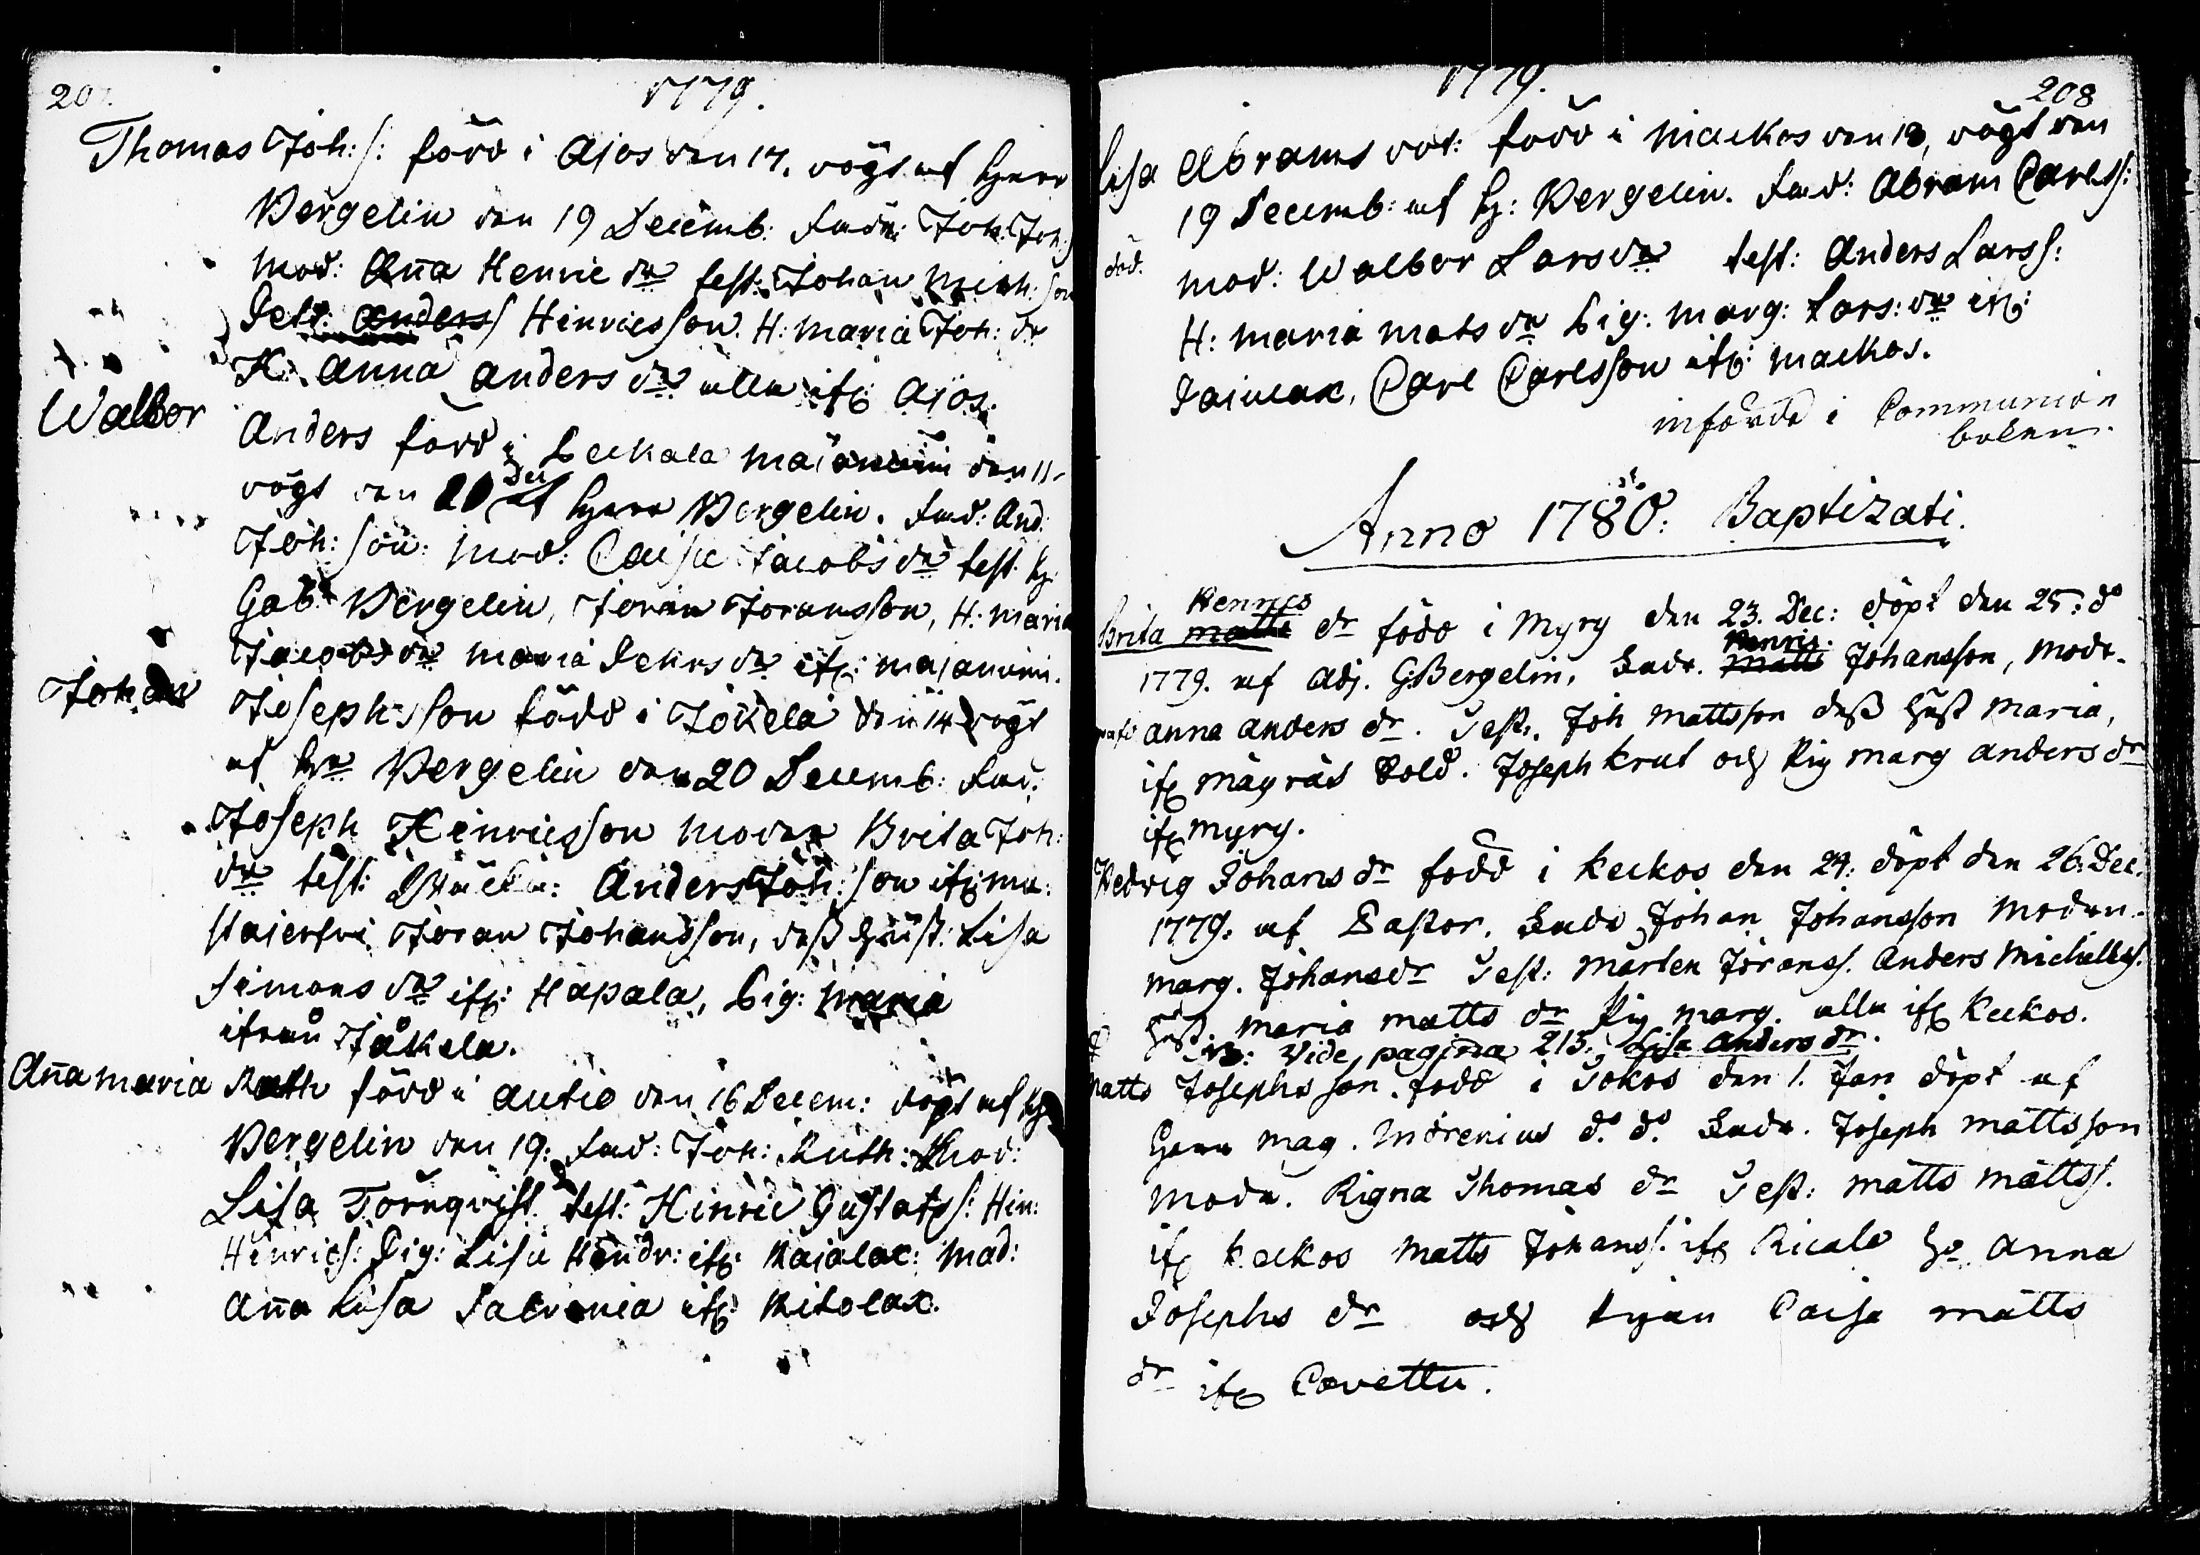 1779.
Thomas Joh: s: född i Ajos den 17. dögt af Herr
Bergelin den 19 Decemb: fad: Joh: Joh: s
mod: Aña Henric dr test: Johan Mich: son
Petr: Anders Hinricsson. H: Maria Joh: dr
H: Anna Anders dr alla ifr: Ajos.
Walbor Anders född i Leckala Majaniemi den 11.
dögt den 20 Dec af Herr Bergelin. fad: And:
Joh: son: mod: Caisa Jacobs dr test: H:
Gab: Bergelin, Jöran Joransson, H: Maria
Jacobs dr Maria Pehrs dr ifr: Majaniemi.
Johan Josephsson född i Jokela den 14 dögt
af Hr Bergelin den 20 Decemb: fad:
Joseph Henricsson moder Brita Joh:
dr test: Anders Joh: son ifr: ma:
Jöran Johansson, dess Hust: Lisa
Simons dr ifr: Hapala, Pig: Maria
ifrån Jåkela.
Aña Maria Ruth född i Autio den 16 Decem: dögt af H:
Bergelin den 19: fad: Joh: Ruth: Mod:
Lisa Törnqvist. test: Hinric Gustafs: Hin:
Hinrics: Pig: Lisa Hendr: ifr: Kaialax: Mad:
Aña Lisa ifr: Kitolax.
1779.
208
Lisa Abrams dot: född i Mackos den 13, dögt den
19 Decemb: af H: Bergelin. fad: Abram Carls s:
död. mod: Walbor Lars dr test: Anders Larss:
H: Maria Mats dr Pig: Marg: Lars: dr ifr:
Carl Carlsson ifr: Mackos.
införde i Communion
boken.
Anno 1780: Baptizati.
Henrics
Brita Matts dr född i Myry den 23. Dec: döpt den 25: do
Henric
1779. af Adj. G. Bergelin, Fadr. Matts Johansson, Modr.
Anna Anders dr. Test. Joh Mattsson dess Hust Maria,
ifr Mäyräs Sold. Joseph Krut och Pig Marg Anders dr
ifr Myry.
Hedvig Johans dr född i Keckos den 24: döpt den 26: Dec:
1779. af Pastor. Fadr Johan Johansson Modren.
Marg. Johansdr Test: Mårten Jöranss. Anders Michelss.
Hust: Maria Matts dr Pig Marg. alla ifr Keckos.
NB: Vide pagina 213. Lisa Anders dr.
Matts Josephsson. född i Sokos den 1. Jan döpt af
Herr Mag. Indrenius do. do. Fadr. Joseph Mattsson
Modr. Rigna Thomas dr Test: Matts Mattss.
ifr Keckos Matts Johanss. ifr Ricala Ho Anna
Josephs dr och Pigan Caisa Matts
dr ifr Cavettu.